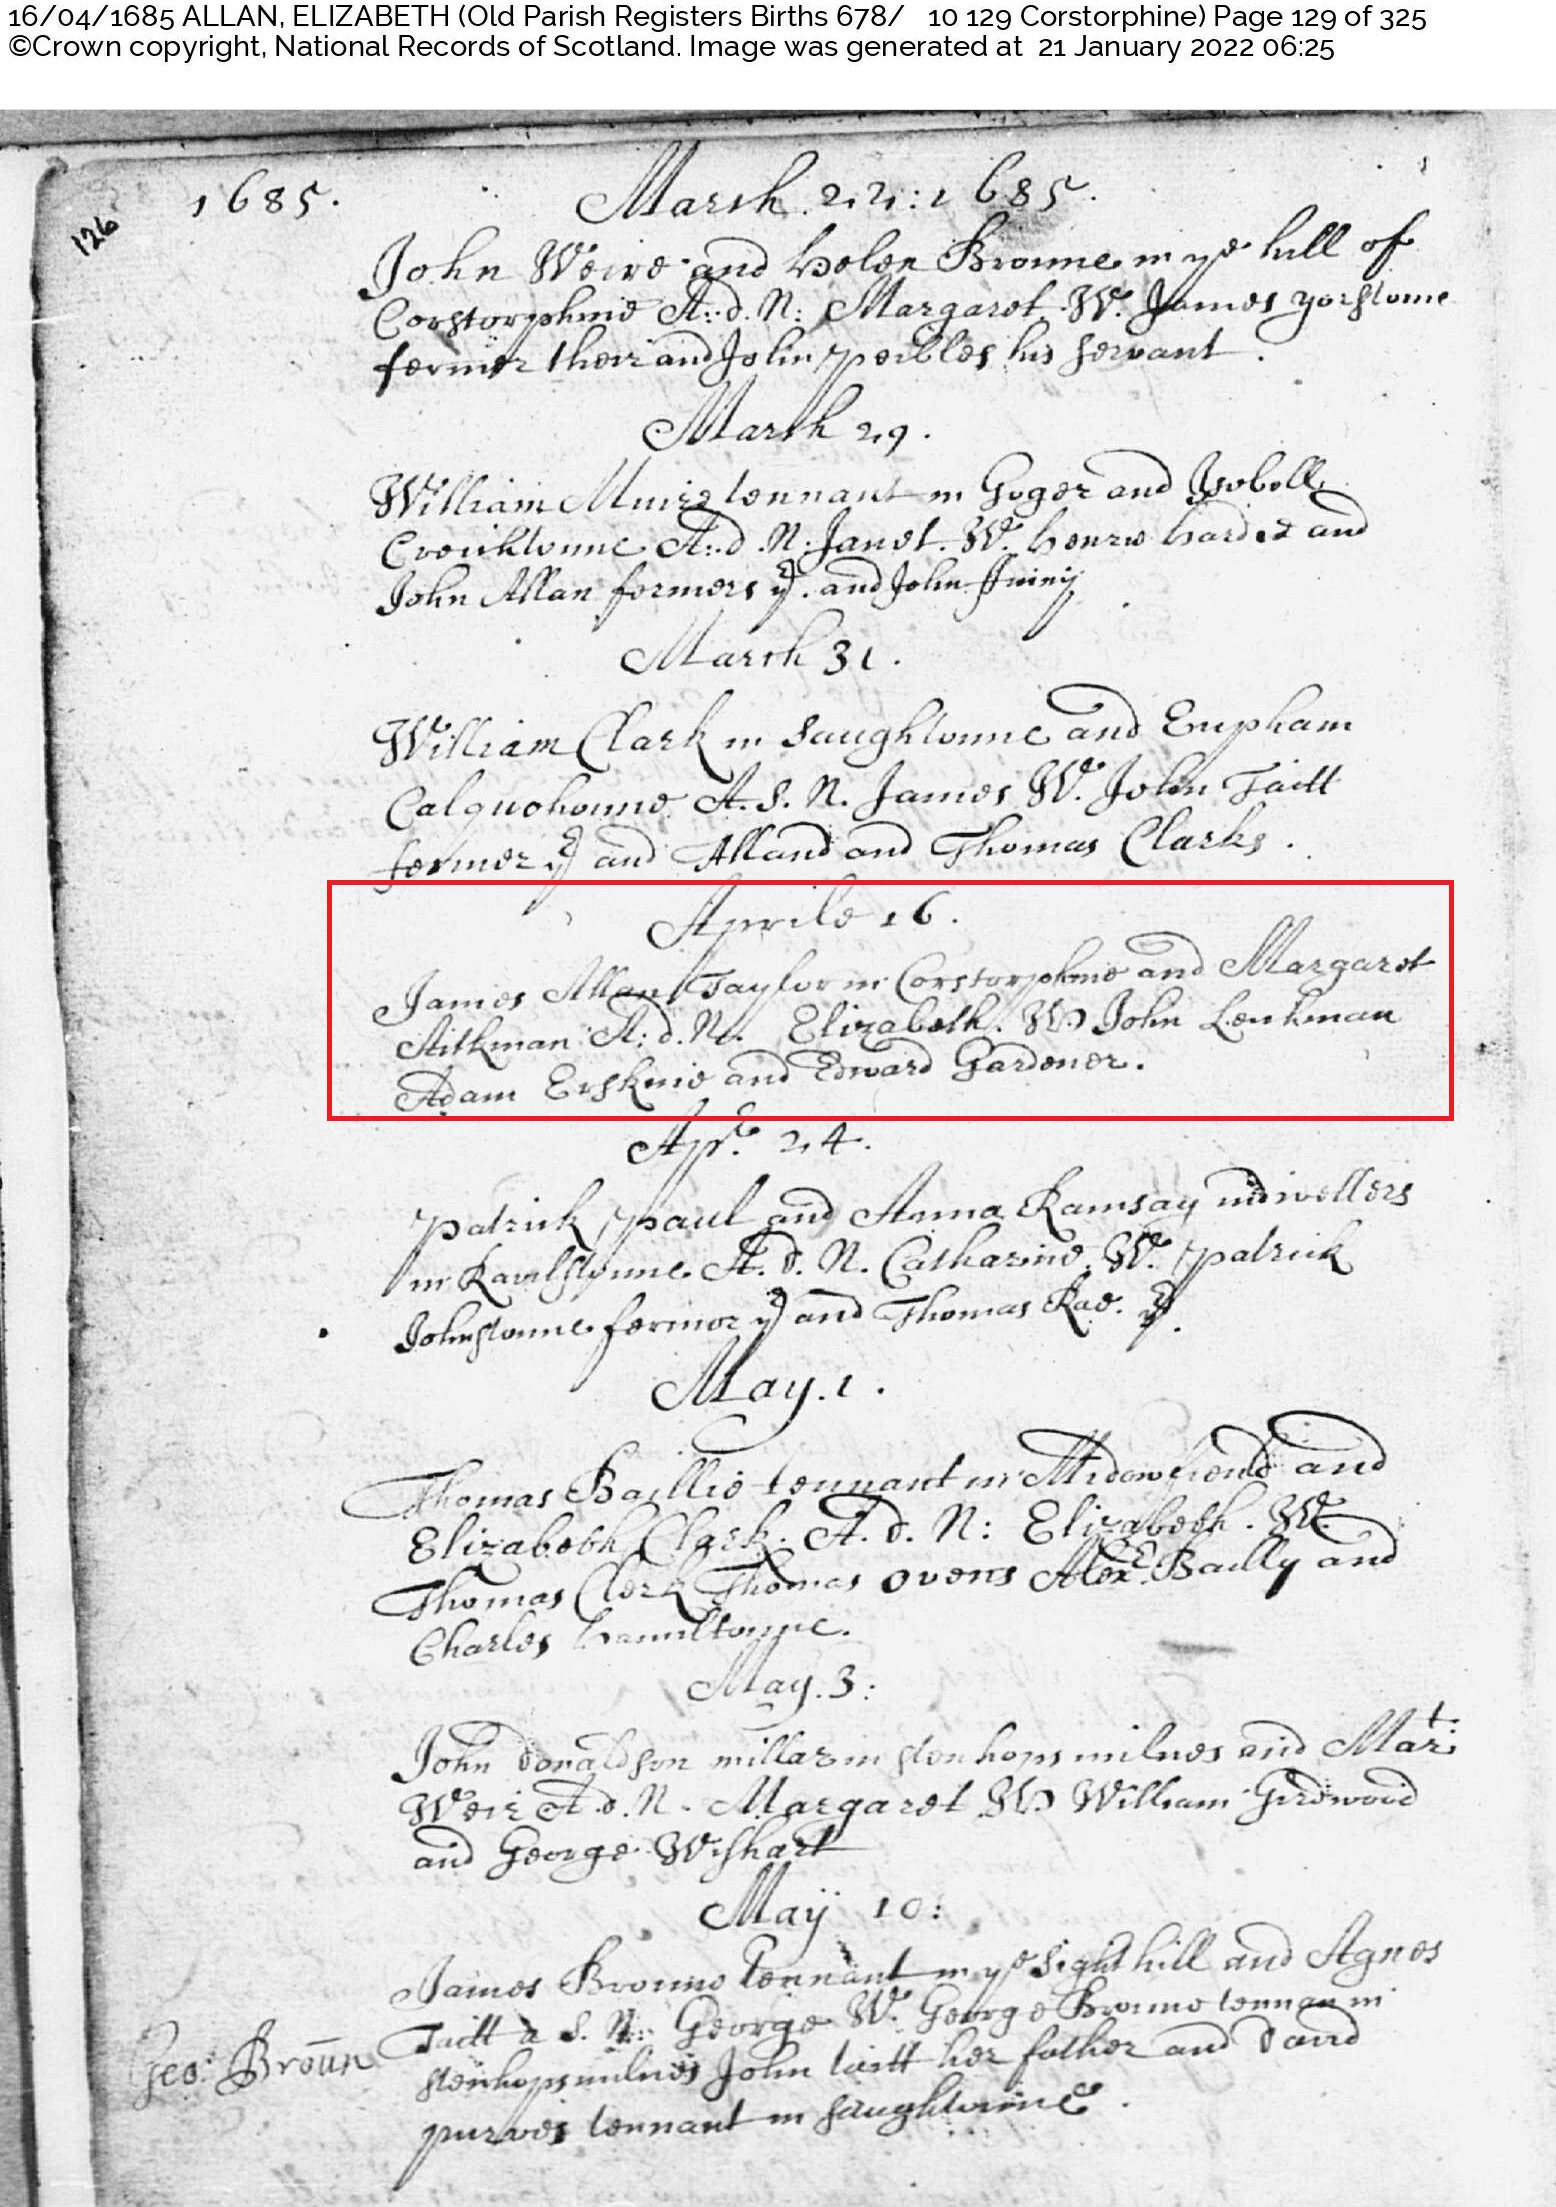 16/04/1685 ALLAN, ELIZABETH (Old Parish Registers Births 678/ 10 129 Corstorphine) Page 129 of 325
©Crown copyright, National Records of Scotland. Image was generated at 21 January 2022 06:25
1685. March. 22: 1685.
126
John Weire and Helen Broune in ye hill of
Corstorphine A: d. N: Margaret. W. James yorstoune
fermer their and John peibles his servant.
March 29.
William Muire tennant in Goger and Issobell
A: d. N: Janet. W. and
John Allan fermers yr. and John
March 31.
William Clark in Saughtoune and Eupham
Calquohoune A. S. N. James W. John Taitt
fermer yr and Alland and Thomas Clarks.
Aprile 16.
James Allan Taylor in Corstorphine and Margaret
Aitkman A: d. N. Elizabeth. W. John Lenkman
Adam Erskine and Edward Gardener.
Apr. 24.
patrick paul and Anna Ramsay indwellers
in Ravelstoune A. d. N. Catharine. W. patrick
Johnstoune fermer yr and Thomas Rae. yr.
May. 1.
Thomas Baillie tennant in and
Elizabeth Clark. A. d. N: Elizabeth. W.
Thomas Clerk Thomas ovens Alexr. Bailly and
Charles hamiltoune.
May. 3:
John donaldson millar in stenhops milnes and Mart:
Weir A. d. N. Margaret W. William Girdwood
and George Wishart
May 10:
James Broune tennant in ye Sight hill and Agnes
Taitt a S. N: George W. George Broune tennan in
stenhopsmilnes John taitt her father and david
purves tennant in saughtoune.
Geo: Broun